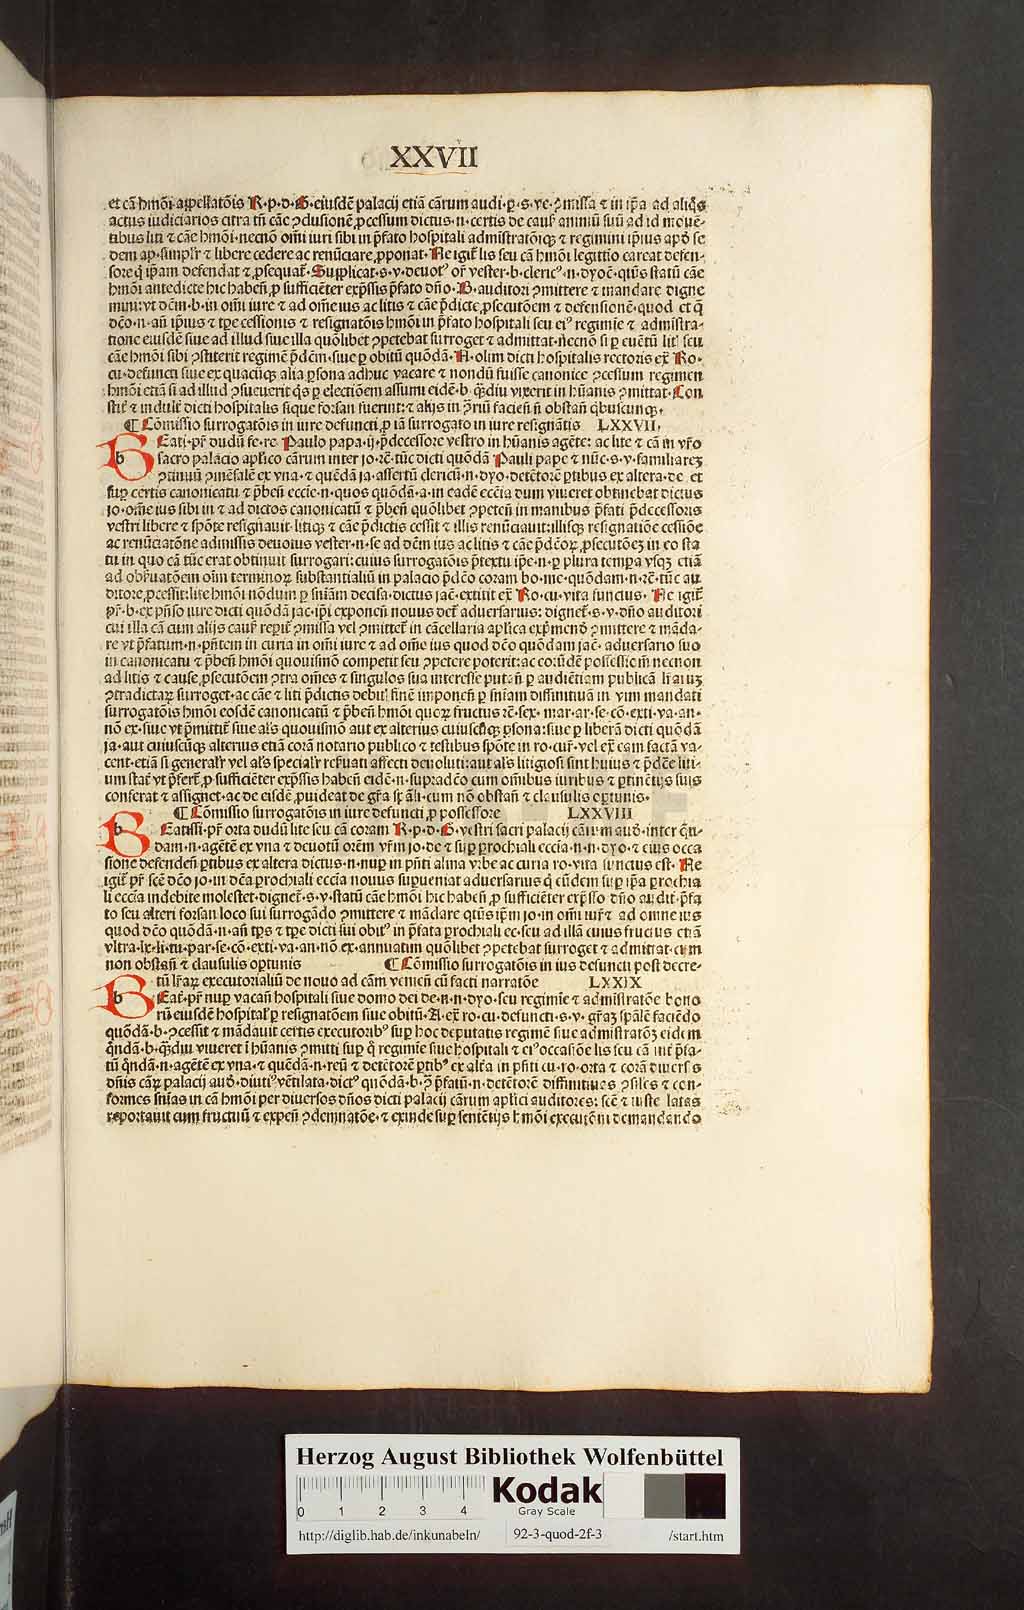 XXVII
et cā hmōi appellatōis R·p·d·G·eiusdē palacij etiā cārum audi·ꝑ·s·ve·ꝯmissa ⁊ in ip̄a ad aliq̄s
actus iudiciarios citra tn̄ cāe ꝯclusionē ꝓcessum dictus·n·certis de caus̄ animū suū ad id mouē-
tibus liti ⁊ cāe hmōi·necnō om̄i iuri sibi in p̄fato hospitali admīstratōiqꝫ ⁊ regimini ip̄ius apd̄ se
dem ap·simpl'r ⁊ libere cedere ac renūciare ꝓponat· Ne igit̄ lis seu cā hmōi legittīo careat defen-
sore q̄ ip̄am defendat ⁊ ꝓsequat̄· Supplicat·s·v·deuotꝰ or̄ vester·b·clericꝰ·n·dyoc̄·qtūs statū cāe
hmōi antedicte hic haben̄ ꝓ sufficiēter exp̄ssis p̄fato dn̄o· G·auditori ꝯmittere ⁊ mandare digne
mini·vt dc̄m·b·in om̄i iure ⁊ ad om̄e ius ac litis ⁊ cāe p̄dicte ꝓsecutōem ⁊ defensionē·quod et q̄
dc̄o·n·an̄ ip̄ius ⁊ tp̄e cessionis ⁊ resignatōis hmōi in p̄fato hospitali seu eiꝰ regimīe ⁊ admīstra-
tione eiusdē siue ad illud siue illa quōlibet ꝯpetebat surroget ⁊ admittat·necnō si ꝑ euētū lit̄ seu
cāe hmōi sibi ꝯstiterit regimē p̄dc̄m·siue ꝑ obitū quōdā· N·olim dicti hospitalis rectoris ex̄ Ro·
cu·defuncti siue ex quacūqꝫ alia ꝑsona adhuc vacare ⁊ nondū fuisse canonice ꝯcessum regimen
hmōi etiā si ad illud ꝯsueuerit q̄s ꝑ electiōem assumi eidē·b·qꝫdiu vixerit in hūanis ꝯmittat· Con
stit̄ ⁊ indult̄ dicti hospitalis sique forsan fuerint·⁊ alijs in ꝯriū facien̄ n̄ obstan̄ qbuscunqꝫ·
¶ Cōmissio surrogatōis in iure defuncti ꝓ iā surrogato in iure resignātis LXXVII·
BEati·pr̄ dudū fe·re· Paulo papa·ij·p̄decessore vestro in hūanis agēte· ac lite ⁊ cā in vr̄o
sacro palacio ap̄lico cārum inter jo·rē·tūc dicti quōdā Pauli pape ⁊ nūc·s·v·familiareꝫ
ꝯtinuū ꝯmēsalē ex vna·⁊ quēdā ja·assertū clericū·n·dyo·detētorē ꝑtibus ex altera·de et
sup̄ certis canonicatu ⁊ p̄ben̄ eccīe·n·quos quōdā·a·in eadē ecc̄ia dum viueret obtinebat dictus
jo·om̄e ius sibi in ⁊ ad dictos canonicatū ⁊ p̄ben̄ quōlibet ꝯpeten̄ in manibus p̄fati p̄decessoris
vestri libere ⁊ spōte resignauit·litiqꝫ ⁊ cāe p̄dictis cessit ⁊ illis renūciauit·illisqꝫ resignatiōe cessiōe
ac renūciatōne admissis deuotus vester·n·se ad dc̄m ius ac litis ⁊ cāe p̄dc̄oꝝ ꝓsecutōeꝫ in eo sta
tu in quo cā tūc erat obtinuit surrogari·cuius surrogatōis p̄textu ip̄e·n·ꝑ plura tempa vsqꝫ etiā
ad obs̄uatōem om̄ terminoꝝ substantialiū in palacio p̄dc̄o coram bo·me·quōdam·n·rē·tūc au
ditore ꝓcessit·lite hmōi nōdum ꝑ sniam decisa·dictus jac̄·extitit ex̄ Ro·cu·vita functus· Ne igit̄
pr̄·b·ex pn̄so iure dicti quōdā jac·ip̄i exponen̄ nouus det̄ aduersarius· dignet̄·s·v·dn̄o auditori
cui illa cā cum alijs caus̄ reperit̄ ꝯmissa vel ꝯmittet̄ in cācellaria aplica exp̄mend̄ ꝯmittere ⁊ māda-
re vt p̄fatum·n·pn̄tem in curia in om̄i iure ⁊ ad om̄e ius quod dc̄o quōdam jac̄· aduersario suo
in canonicatu ⁊ p̄ben̄ hmōi quouismō competit seu ꝯpetere poterit·ac eorūdē possessiōem necnon
ad litis ⁊ cause ꝓsecutōem ꝯtra om̄es ⁊ singulos sua interesse putan̄ ꝑ audiētiam publicā lr̄aruꝫ
ꝯtradictaꝝ surroget·ac cāe ⁊ liti p̄dictis debit̄ finē imponen̄ ꝑ sniam diffinitiuā in vim mandati
surrogatōis hmōi eosdē canonicatū ⁊ p̄ben̄ hmōi quoꝝ fructus rē·sex· mar·ar·se·cō·exti·va·an·
nō ex·siue vt p̄mittit̄ siue als̄ quouismō aut ex alterius cuiuscūqꝫ ꝑsona·siue ꝑ liberā dicti quōdā
ja·aut cuiuscūqꝫ alterius etiā corā notario publico ⁊ testibus spōte in ro·cur̄·vel ex̄ eam factā va-
cent·etiā si generalr̄ vel als̄ specialr̄ res̄uati affecti deuoluti·aut als̄ litigiosi sint huius ⁊ p̄dc̄e liti-
um stat̄ vt p̄fert̄ ꝓ sufficiēter exp̄ssis haben̄ eidē·n·supradc̄o cum om̄ibus iuribus ⁊ ꝑtinētijs suis
conferat ⁊ assignet·ac de eisdē ꝓuideat de gr̄a sp̄ali·cum nō obstan̄ ⁊ clausulis optunis·
¶ Cōmissio surrogatōis in iure defuncti ꝓ possessore LXXVIII
BEatissi·pr̄ orta dudū lite seu cā coram R·p·d·G·vestri sacri palacij cārum aud̄·inter q̄n-
dam·n·agētē ex vna ⁊ deuotū orēm vr̄m jo·de ⁊ sup̄ ꝑrochiali ecc̄ia·n·n·dyo·⁊ eius occa
sione defenden̄ ꝑtibus ex altera dictus·n·nup̄ in pn̄ti alma vrbe ac curia ro·vita functus est· Ne
igit̄ pr̄ sc̄e dc̄o jo·in dc̄a ꝑrochiali ecc̄ia nouus sup̄ueniat aduersarius q̄ eūdem sup̄ ip̄a ꝑrochia
li ecc̄ia indebite molestet·dignet̄·s·v·statū cāe hmōi hic haben̄ ꝓ sufficiēter exp̄sso dn̄o audit·p̄fa
to seu alteri forsan loco sui surrogādo ꝯmittere ⁊ mādare qtūs ip̄m jo·in om̄i iur̄ ⁊ ad omne ius
quod dc̄o quōdā·n·an̄ tp̄s ⁊ tp̄e dicti sui obitꝰ in p̄fata ꝑrochiali ec·seu ad illā cuius fructus etiā
vltra·lx·li·tu·par·se·cō·exti·va·an·nō ex·annuatim quōlibet ꝯpetebat surroget ⁊ admittat·cum
non obstan̄ ⁊ clausulis optunis ¶ Cōmissio surrogatōis in ius defuncti post decre-
tū lr̄aꝝ executorialiū de nouo ad cām venien̄ cū facti narratōe LXXIX
BEat̄·pr̄ nup̄ vacan̄ hospitali siue domo dei de·n·n·dyo·seu regimīe ⁊ admīstratōe bono
rū eiusdē hospital̄ ꝑ resignatōem siue obitū· A·ex̄ ro·cu·defuncti·s·v·gr̄aꝫ sp̄alē faciēdo
quōdā·b·ꝯcessit ⁊ mādauit certis executoribꝰ sup̄ hoc deputatis regimē siue admīstratōꝫ eidem
q̄ndā·b·qꝫdiu viueret ī hūanis ꝯmitti sup̄ q̄ regimīe siue hospitali ⁊ eiꝰ occasiōe lis seu cā int̄ p̄fa-
tū q̄ndā·n·agētē ex vna·⁊ quēdā·n·reū ⁊ detētorē ꝑtibꝰ ex alt̄a in pn̄ti cu·ro·orta ⁊ corā diuersꝭ
dn̄is cāꝝ palacij aud̄·diutiꝰ vētilata·dictꝰ quōdā·b·ꝯ p̄fatū·n·detētorē diffinitiuas ꝯsiles ⁊ con-
formes snias in cā hmōi per diuersos dn̄os dicti palacij cārum aplici auditores· scē ⁊ iuste latas
reportauit cum fructuū ⁊ expen̄ ꝯdemnatōe·⁊ exinde sup̄ sentētijs hmōi executōni demandando
Herzog August Bibliothek Wolfenbüttel
0 1 2 3 4
Kodak
Gray Scale
http://diglib.hab.de/inkunabeln/ 92-3-quod-2f-3 /start.htm